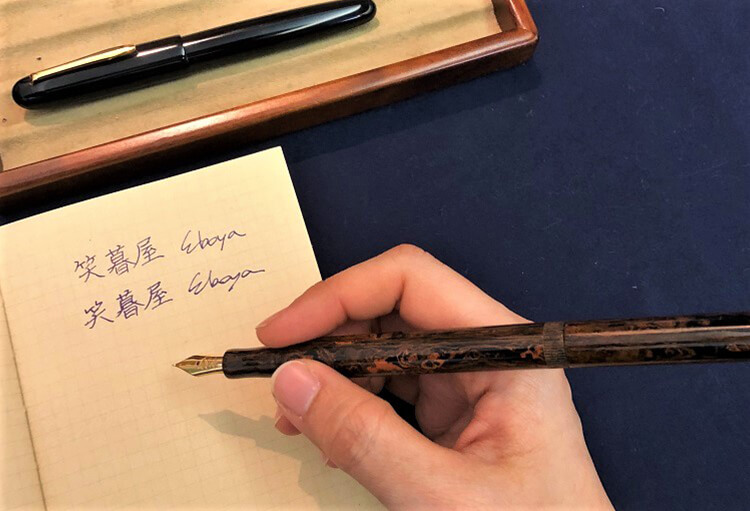 笑暮屋 Eboya
笑暮屋 Eboya